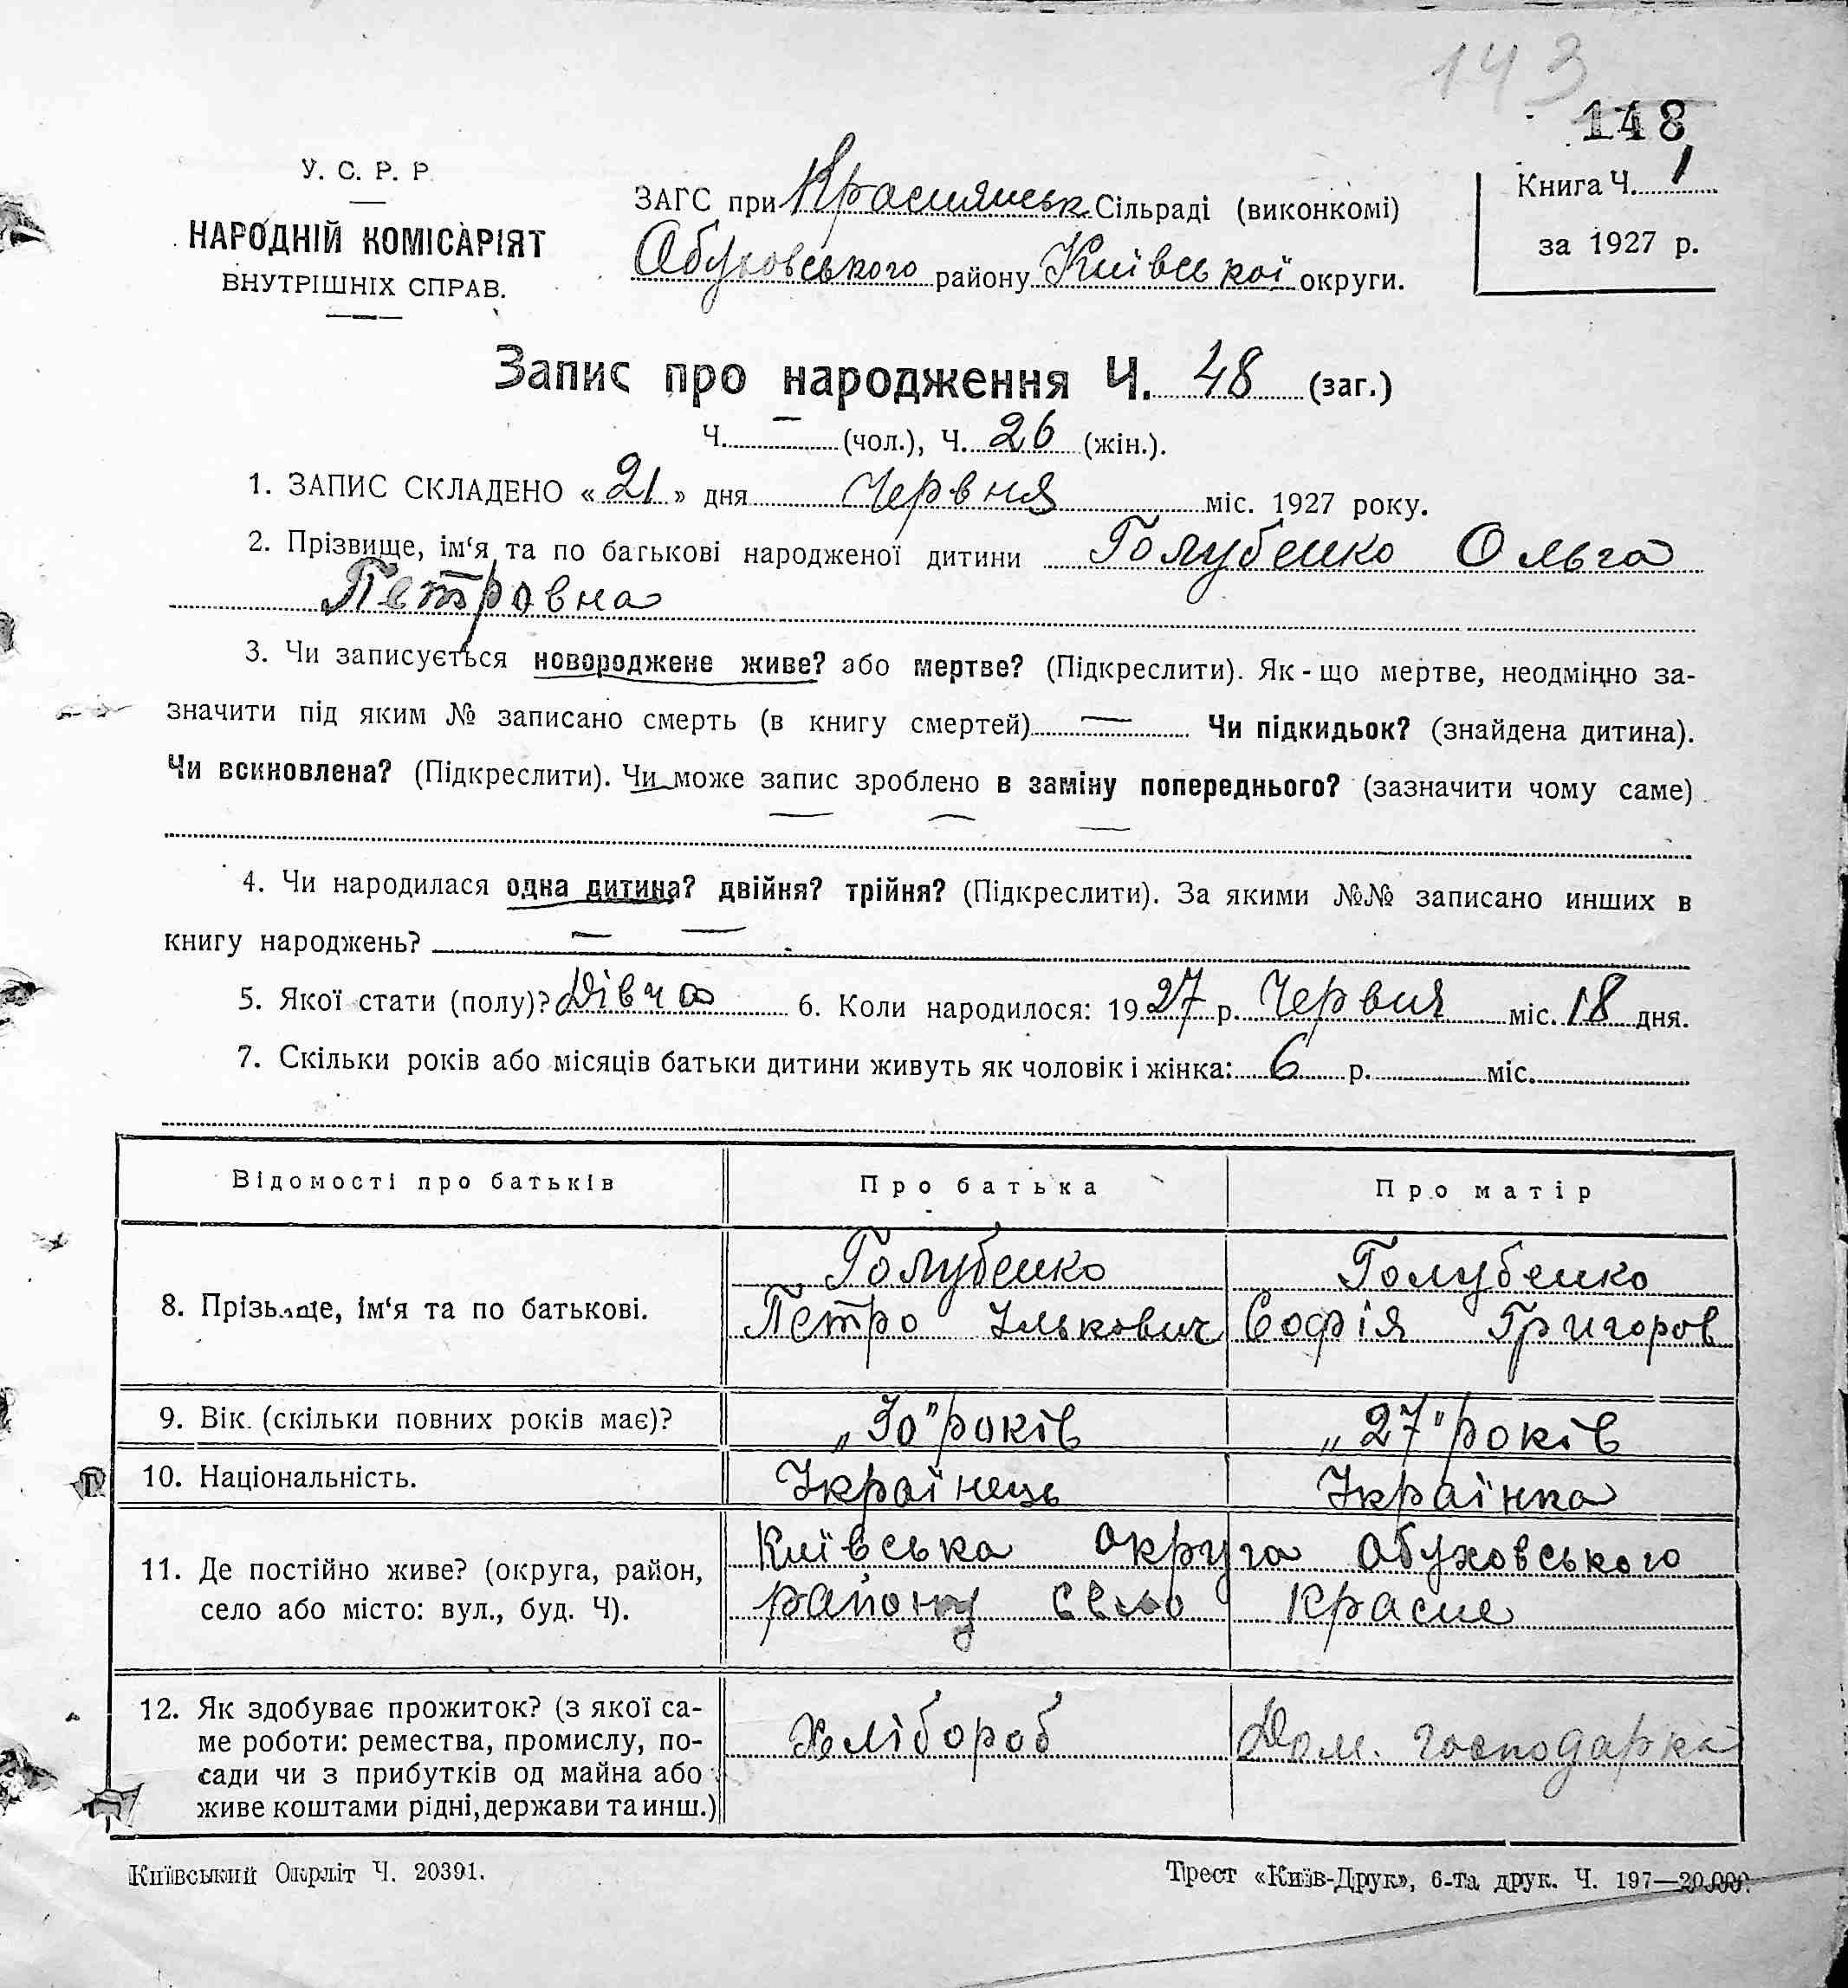 143
148
У. С. Р. Р.
НАРОДНІЙ КОМІСАРІЯТ
ВНУТРІШНІХ СПРАВ.
ЗАГС при Краснянськ. Сільраді (виконкомі)
Обуховського району Київської округи.
Книга Ч. 1
за 1927 р.
Запис про народження Ч. 48 (заг.)
Ч. — (чол.), Ч. 26 (жін.).
1. ЗАПИС СКЛАДЕНО «21» дня Червня міс. 1927 року.
2. Прізвище, ім‘я та по батькові народженої дитини Голубенко Ольга
Петровна
3. Чи записується новороджене живе? або мертве? (Підкреслити). Як-що мертве, неодмінно за-
значити під яким № записано смерть (в книгу смертей) — Чи підкидьок? (знайдена дитина).
Чи всиновлена? (Підкреслити). Чи може запис зроблено в заміну попереднього? (зазначити чому саме)
— — —
4. Чи народилася одна дитина? двійня? трійня? (Підкреслити). За якими №№ записано инших в
книгу народжень? — —
5. Якої стати (полу)? Дівча 6. Коли народилося: 1927 р. Червня міс. 18 дня.
7. Скільки років або місяців батьки дитини живуть як чоловік і жінка: 6 р. міс.
Відомості про батьків Про батька Про матір
Голубенко Голубенко
8. Прізвище, ім‘я та по батькові. Петро Ількович Софія Григоров
9. Вік. (скільки повних років має)? „30" років „27" років
10. Національність. Українець Українка
11. Де постійно живе? (округа, район, Київська округа Обуховського
село або місто: вул., буд. Ч). району село Красне
12. Як здобуває прожиток? (з якої са-
ме роботи: ремества, промислу, по- Хлібороб Дом. господарка
сади чи з прибутків од майна або
живе коштами рідні, держави та инш.)
Київський Окрліт Ч. 20391. Трест «Київ-Друк», 6-та друк. Ч. 197—20.000.